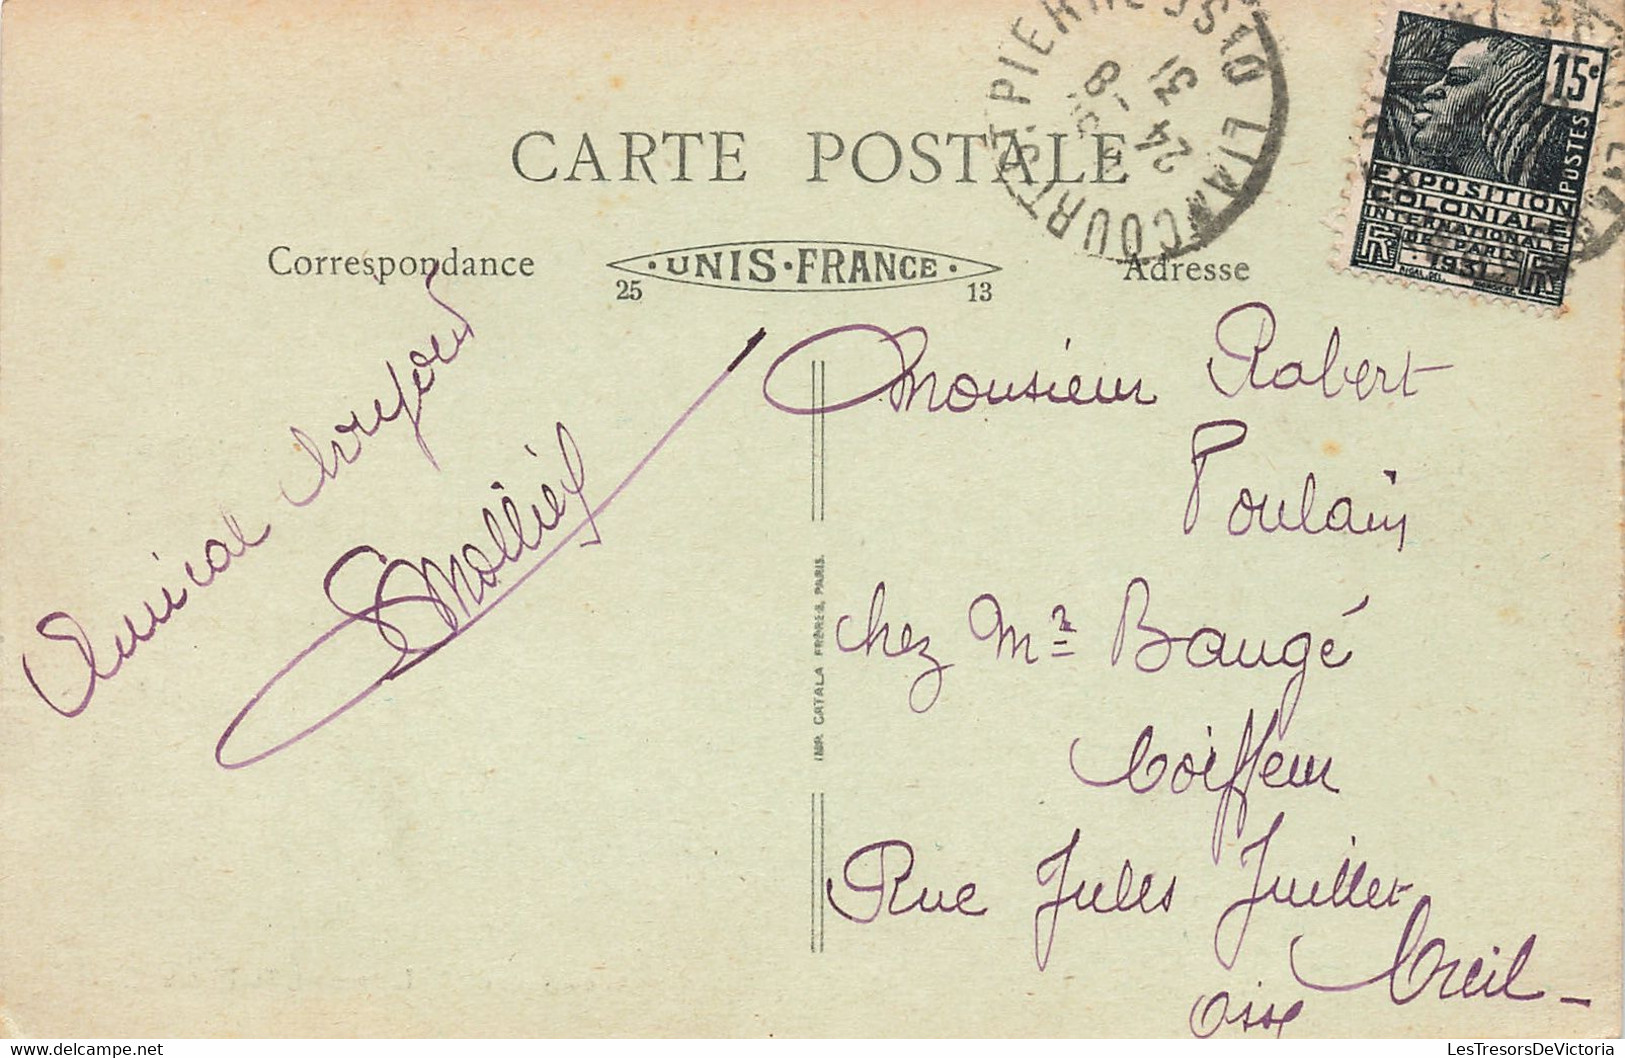 CARTE POSTALE
Correspondance
·UNIS·FRANCE·
25 13
Adresse
LIANCOURT-ST-PIERRE
24 - 8
31
15c
POSTES
EXPOSITION
COLONIALE
INTERNATIONALE
DE PARIS
·1931·
RF RF
Amical bonjour
Monsieur Robert
Poulain
chez Mr Baugé
Coiffeur
Rue Jules Juillet
Creil -
Oise
IMP. CATALA FRÈRES, PARIS.
LesTresorsDeVictoria